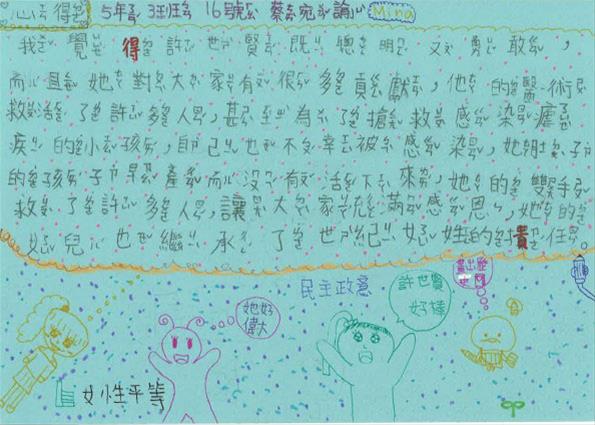 心得 5年3班 16號 蔡宛諭 Mina
我覺得許世賢既聰明又勇敢，
而且她對大家有很多貢獻，他的醫術
救活了許多人，甚至為了搶救感染瘧
疾的小孩，自己也不幸被感染，她肚子
的孩子早產而沒有活下來，她的雙手
救了許多人，讓大家充滿感恩，她的
女兒也繼承了世紀好姓的責任。
民主政意
畫出歷史圖
許世賢好棒
她好偉大
女性平等